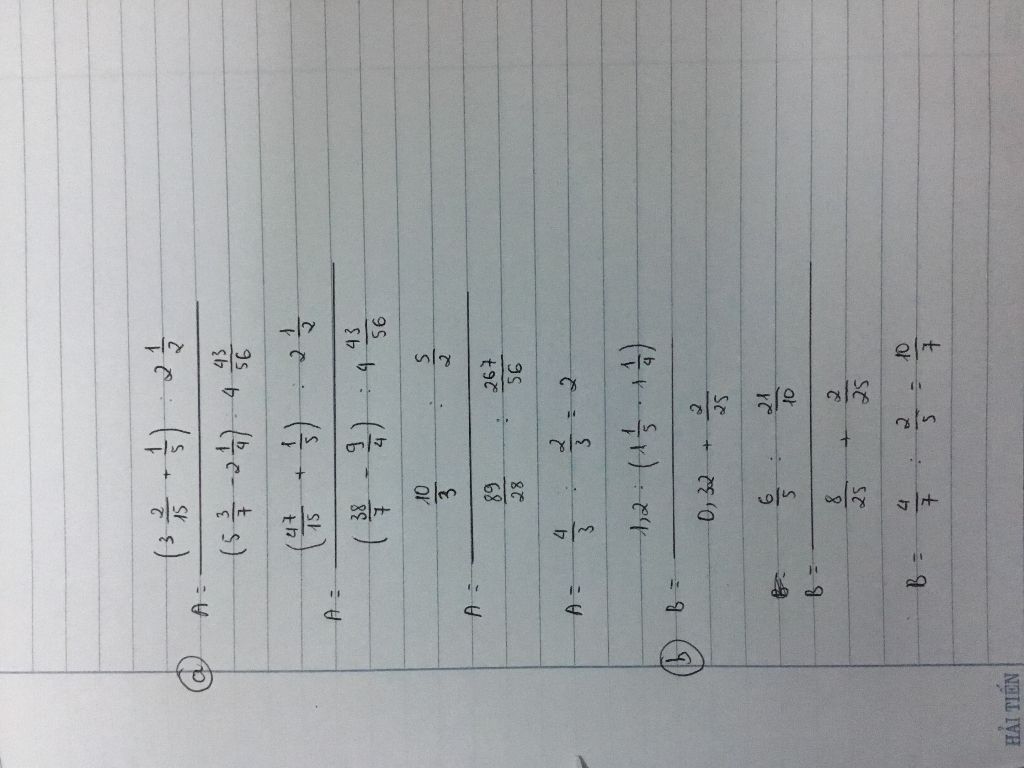 (a) A = ((3 2/15 + 1/5) : 2 1/2) / ((5 3/7 - 2 1/4) : 4 43/56)
A = ((47/15 + 1/5) : 2 1/2) / ((38/7 - 9/4) : 4 43/56)
A = (10/3 : 5/2) / (89/28 : 267/56)
A = 4/3 : 2/3 = 2
(b) B = (1,2 : (1 1/5 . 1 1/4)) / (0,32 + 2/25)
B = (6/5 : 21/10) / (8/25 + 2/25)
B = 4/7 : 2/5 = 10/7
HẢI TIẾN